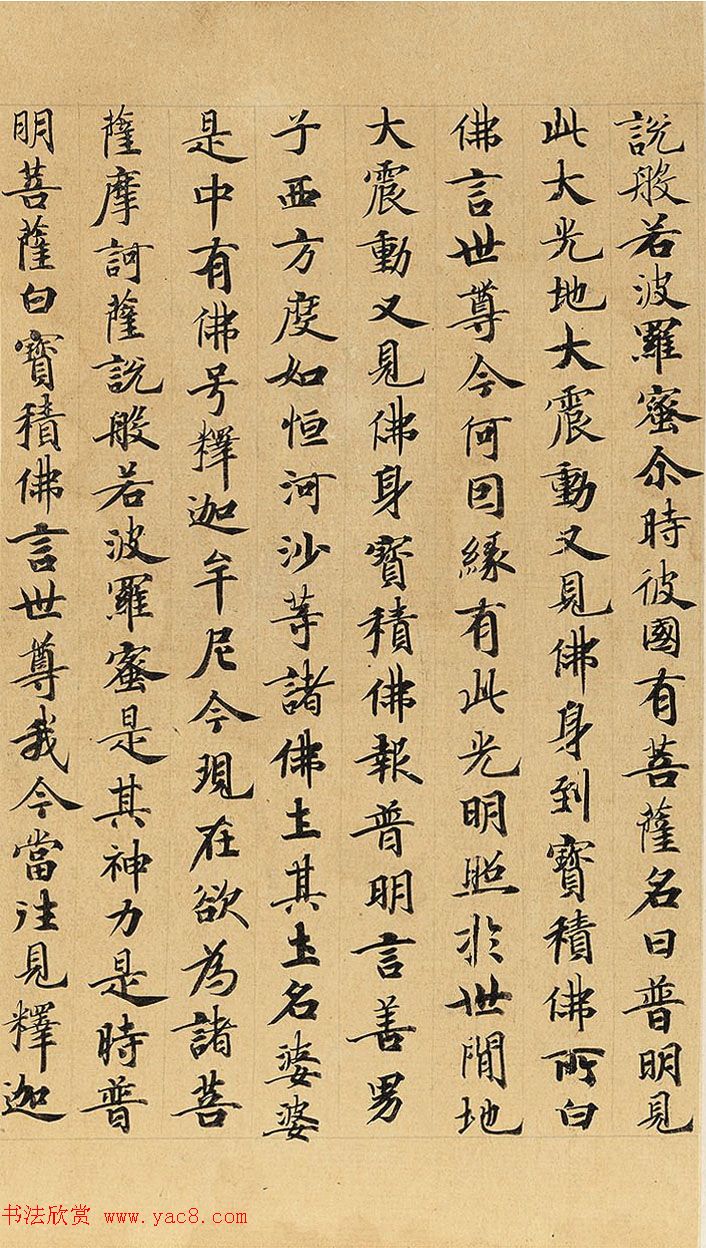 說般若波羅蜜尒時彼國有菩薩名曰普明見
此大光地大震動又見佛身到寶積佛所白
佛言世尊今何因緣有此光明照於世間地
大震動又見佛身寶積佛報普明言善男
子西方度如恒河沙等諸佛土其土名娑婆
是中有佛号釋迦牟尼今現在欲為諸菩
薩摩訶薩說般若波羅蜜是其神力是時普
明菩薩白寶積佛言世尊我今當往見釋迦
书法欣赏 www.yac8.com